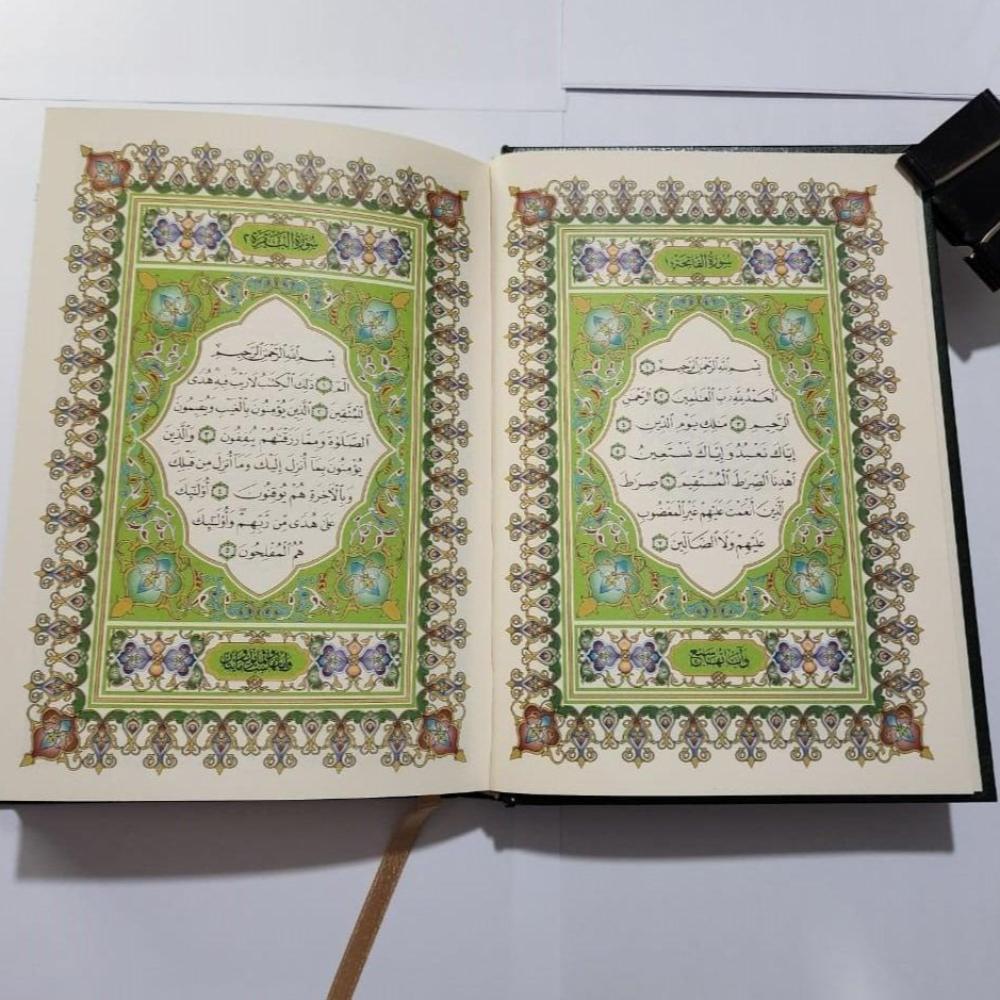 سورة الفاتحة ١
بِسْمِ اللَّهِ الرَّحْمَٰنِ الرَّحِيمِ ١
الْحَمْدُ لِلَّهِ رَبِّ الْعَٰلَمِينَ ٢ الرَّحْمَٰنِ
الرَّحِيمِ ٣ مَٰلِكِ يَوْمِ الدِّينِ ٤
إِيَّاكَ نَعْبُدُ وَإِيَّاكَ نَسْتَعِينُ ٥
ٱهْدِنَا الصِّرَٰطَ الْمُسْتَقِيمَ ٦ صِرَٰطَ
الَّذِينَ أَنْعَمْتَ عَلَيْهِمْ غَيْرِ الْمَغْضُوبِ
عَلَيْهِمْ وَلَا الضَّالِّينَ ٧
وآياتها سبع
سورة البقرة ٢
بِسْمِ اللَّهِ الرَّحْمَٰنِ الرَّحِيمِ
الٓمٓ ١ ذَٰلِكَ الْكِتَٰبُ لَا رَيْبَ فِيهِ هُدًى
لِّلْمُتَّقِينَ ٢ الَّذِينَ يُؤْمِنُونَ بِالْغَيْبِ وَيُقِيمُونَ
الصَّلَوٰةَ وَمِمَّا رَزَقْنَٰهُمْ يُنفِقُونَ ٣ وَالَّذِينَ
يُؤْمِنُونَ بِمَا أُنزِلَ إِلَيْكَ وَمَا أُنزِلَ مِن قَبْلِكَ
وَبِالْآخِرَةِ هُمْ يُوقِنُونَ ٤ أُو۟لَٰٓئِكَ
عَلَىٰ هُدًى مِّن رَّبِّهِمْ وَأُو۟لَٰٓئِكَ
هُمُ الْمُفْلِحُونَ ٥